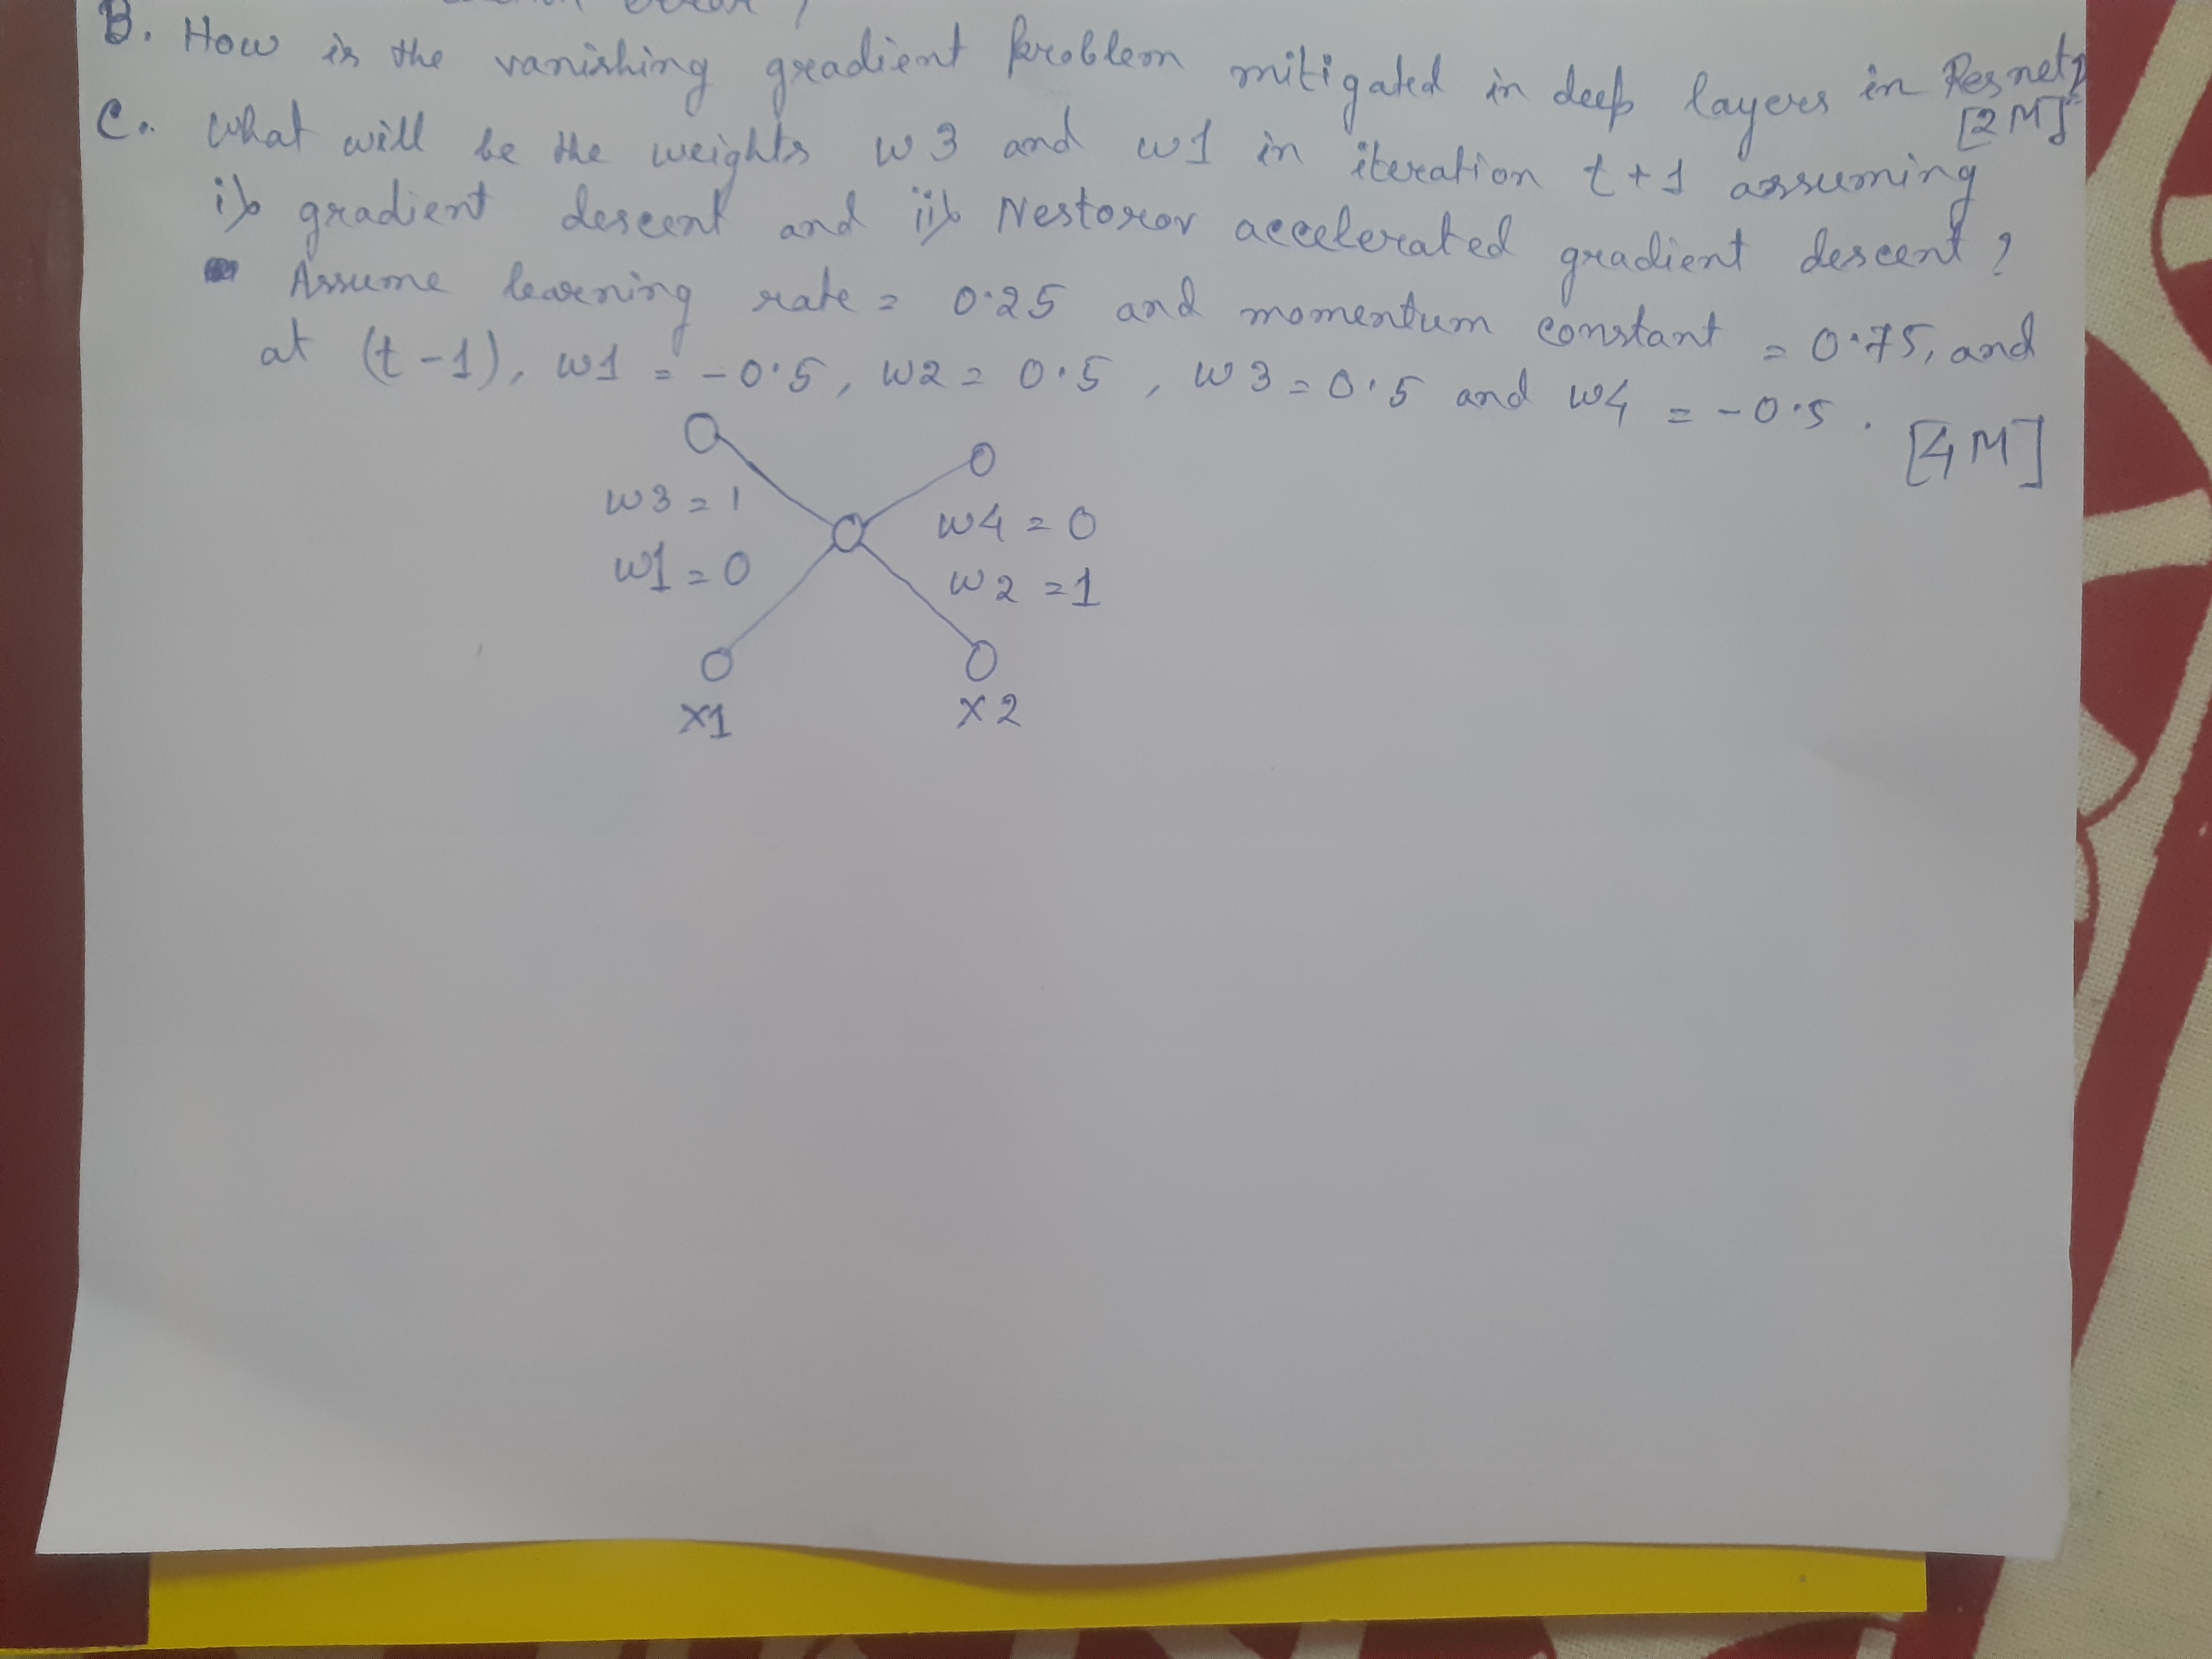 B. How is the vanishing gradient problem mitigated in deep layers in Resnet?
[2M]
C. What will be the weights w3 and w1 in iteration t+1 assuming
i) gradient descent and ii) Nestorov accelerated gradient descent?
Assume learning rate = 0.25 and momentum constant = 0.75, and
at (t-1), w1 = -0.5, w2 = 0.5, w3 = 0.5 and w4 = -0.5.
[4M]
w3 = 1
w4 = 0
w1 = 0
w2 = 1
X1
X2